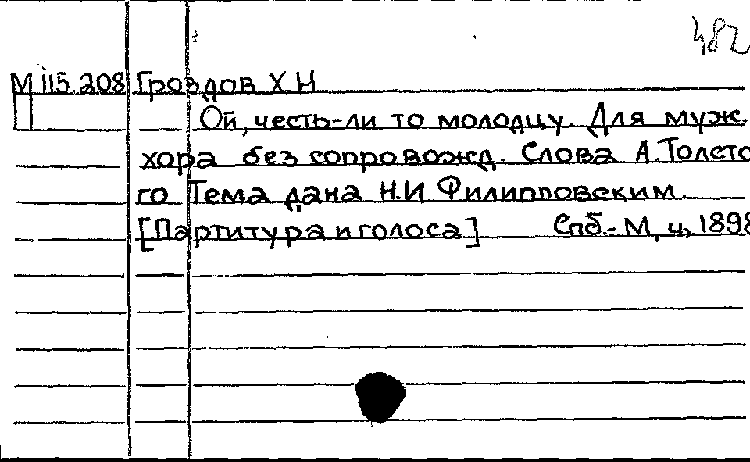 482
М 115.208 Гроздов Х Н
Ой, честь-ли то молодцу. Для муж.
хора без сопровожд. Слова А.Толсто
го Тема дана Н.И Филипповским.
[Партитура и голоса] Спб.-М, ц, 1898